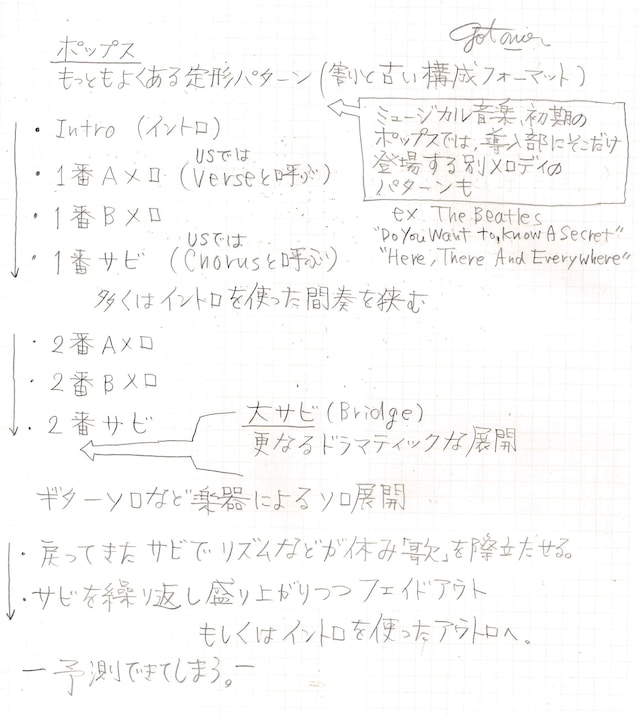 ポップス
もっともよくある定形パターン（割りと古い構成フォーマット）
・Intro（イントロ）
ミュージカル音楽、初期の
ポップスでは、導入部にそこだけ
登場する別メロディの
パターンも
USでは
・1番Aメロ（Verseと呼ぶ）
・1番Bメロ
ex The Beatles
"Do You Want to Know A Secret"
"Here, There And Everywhere"
USでは
・1番サビ（Chorusと呼ぶ）
多くはイントロを使った間奏を挟む
・2番Aメロ
・2番Bメロ
・2番サビ
大サビ（Bridge）
更なるドラマティックな展開
ギターソロなど楽器によるソロ展開
・戻ってきたサビでリズムなどが休み「歌」を際立たせる。
・サビを繰り返し盛り上がりつつフェイドアウト
もしくはイントロを使ったアウトロへ。
ー予測できてしまう。ー